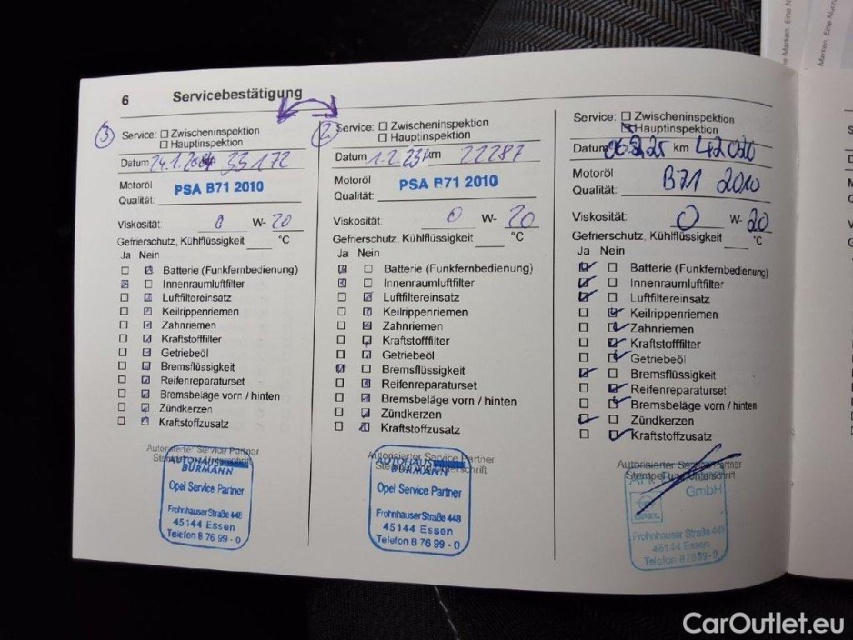 6 Servicebestätigung
③
Service: Zwischeninspektion
Hauptinspektion
Datum 24.1. 33172
Motoröl
Qualität:
PSA B71 2010
Viskosität: 0 W- 20
Gefrierschutz, Kühlflüssigkeit °C
Ja Nein
Batterie (Funkfernbedienung)
Innenraumluftfilter
Luftfiltereinsatz
Keilrippenriemen
Zahnriemen
Kraftstofffilter
Getriebeöl
Bremsflüssigkeit
Reifenreparaturset
Bremsbeläge vorn / hinten
Zündkerzen
Kraftstoffzusatz
Autorisierter Service Partner
AUTOHAUS
BURMANN
Opel Service Partner
Frohnhauser Straße 448
45144 Essen
Telefon 8 76 99 - 0
②
Service: Zwischeninspektion
Hauptinspektion
Datum 1.2.23 km 22287
Motoröl
Qualität:
PSA B71 2010
Viskosität: 0 W- 20
Gefrierschutz, Kühlflüssigkeit °C
Ja Nein
Batterie (Funkfernbedienung)
Innenraumluftfilter
Luftfiltereinsatz
Keilrippenriemen
Zahnriemen
Kraftstofffilter
Getriebeöl
Bremsflüssigkeit
Reifenreparaturset
Bremsbeläge vorn / hinten
Zündkerzen
Kraftstoffzusatz
Autorisierter Service Partner
AUTOHAUS
BURMANN
Opel Service Partner
Frohnhauser Straße 448
45144 Essen
Telefon 8 76 99 - 0
Service: Zwischeninspektion
Hauptinspektion
Datum km 42020
Motoröl
Qualität: B71 2010
Viskosität: 0 W- 20
Gefrierschutz, Kühlflüssigkeit °C
Ja Nein
Batterie (Funkfernbedienung)
Innenraumluftfilter
Luftfiltereinsatz
Keilrippenriemen
Zahnriemen
Kraftstofffilter
Getriebeöl
Bremsflüssigkeit
Reifenreparaturset
Bremsbeläge vorn / hinten
Zündkerzen
Kraftstoffzusatz
Autorisierter Service Partner
Stempel und Unterschrift
GmbH
Frohnhauser Straße 448
45144 Essen
Telefon 8 76 99 - 0
CarOutlet.eu